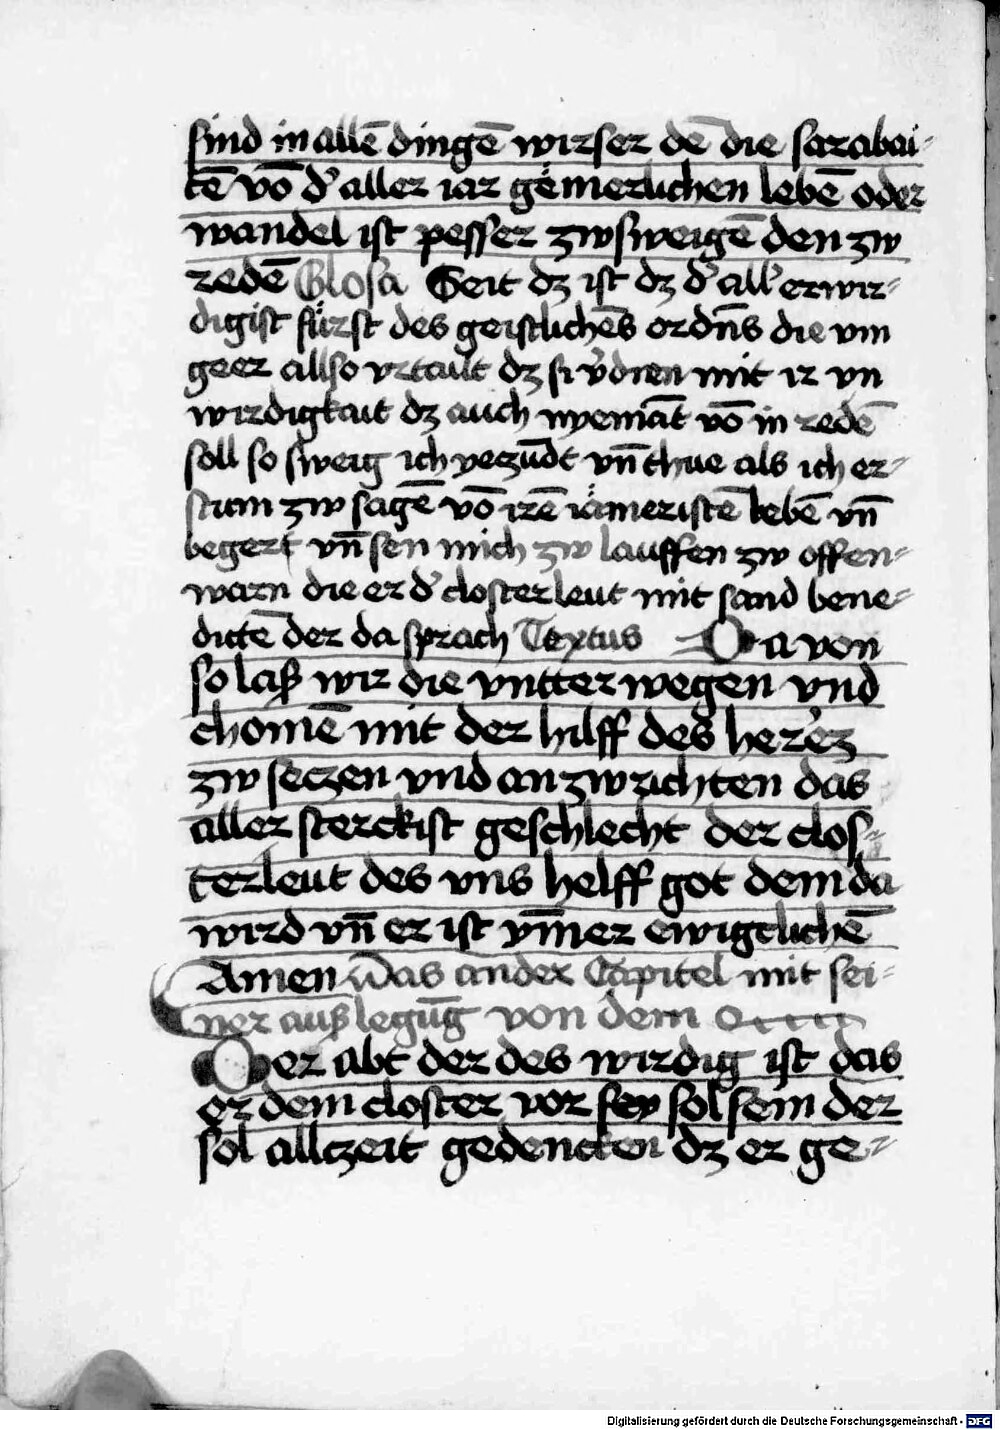 sind in allē dingē wirser dē die sarabai-
tē vō d' aller iar gemerlichen lebē oder
wandel ist pesser zwsweigē den zw
redē Glosa Seit dz ist dz d' all' erwir-
digist fürst des geistlichēs ordn̄s die vm
geer allso vrtailt dz si v'dien mit ir vn
wirdigkait dz auch nyemāt vō in redē
soll so sweig ich yeczūdt vn̄ thue als ich er-
stum zw sagē vō irē iämeristē lebē vn̄
begert vn̄ sen mich zw lauffen zw offen-
warn die er d' closterleut mit sand bene-
dictē der da sprach Textus Da von
so laß wir die vntter wegen vnd
chomē mit der hilff des her'ez
zw seczen vnd an zw richten das
aller sterckist geschlecht der clos-
terleut des vns helff got dem da
wird vn̄ er ist ym̄er ewigclichē
Amen Das ander Capitel mit sei-
ner außlegūg von dem
Der abt der des wirdig ist das
er dem closter vor sey sol sein der
sol allczeit gedencken dz er ge-
Digitalisierung gefördert durch die Deutsche Forschungsgemeinschaft - DFG